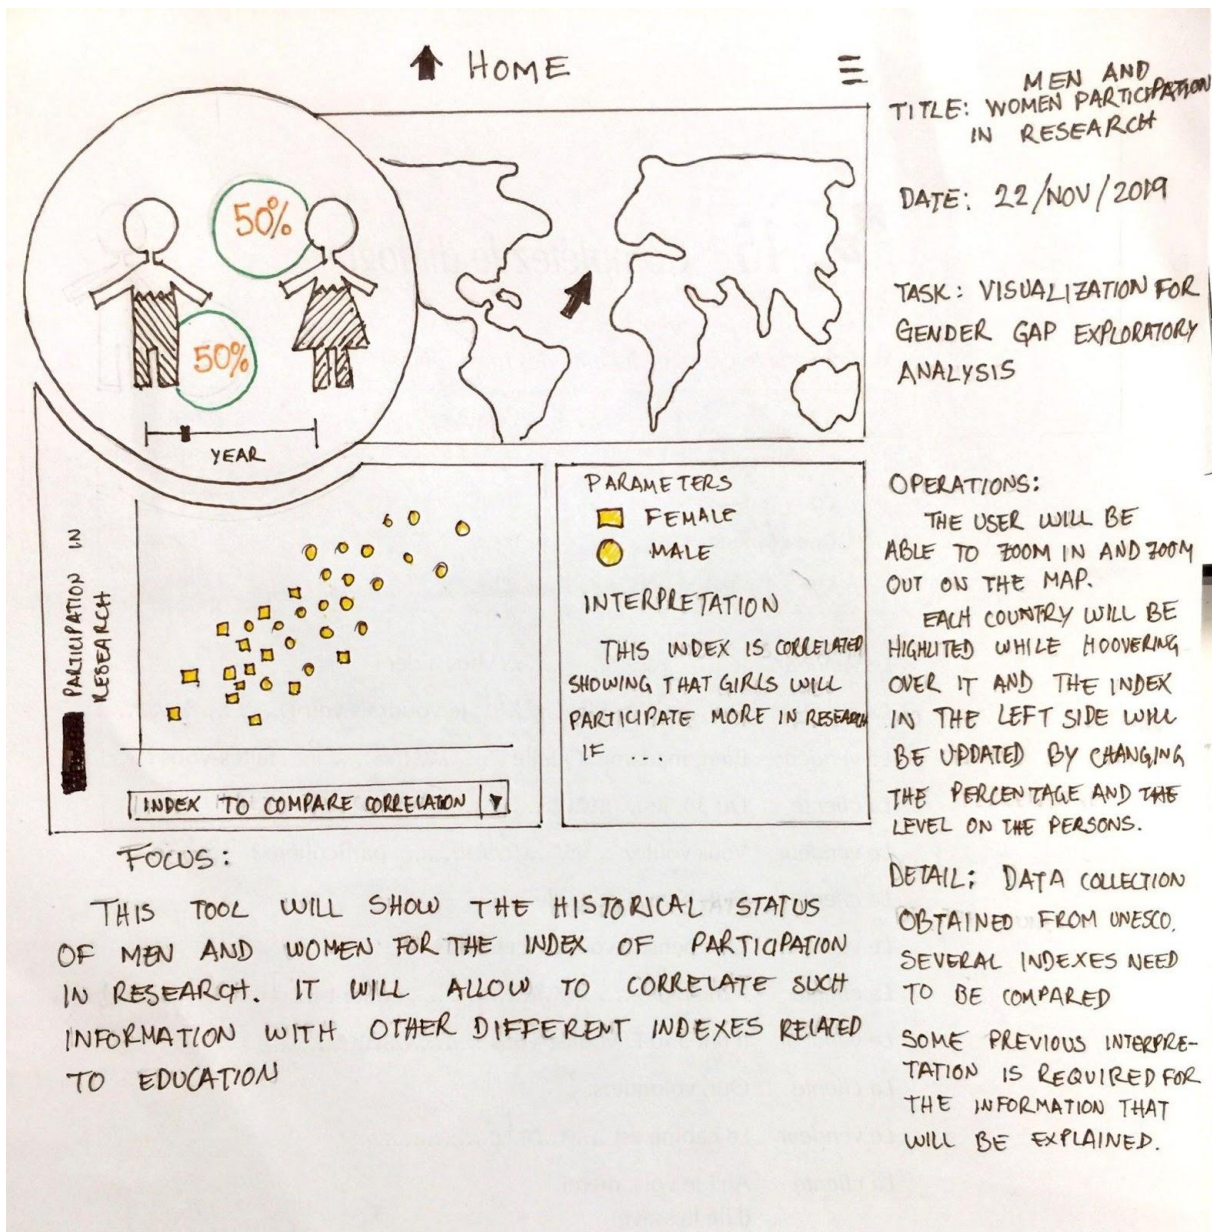 HOME
50%
50%
YEAR
PARTICIPATION IN
RESEARCH
INDEX TO COMPARE CORRELATION
PARAMETERS
FEMALE
MALE
INTERPRETATION
THIS INDEX IS CORRELATED
SHOWING THAT GIRLS WILL
PARTICIPATE MORE IN RESEARCH
IF
FOCUS:
THIS TOOL WILL SHOW THE HISTORICAL STATUS
OF MEN AND WOMEN FOR THE INDEX OF PARTICIPATION
IN RESEARCH. IT WILL ALLOW TO CORRELATE SUCH
INFORMATION WITH OTHER DIFFERENT INDEXES RELATED
TO EDUCATION
MEN AND
TITLE: WOMEN PARTICIPATION
IN RESEARCH
DATE: 22/NOV/2019
TASK: VISUALIZATION FOR
GENDER GAP EXPLORATORY
ANALYSIS
OPERATIONS:
THE USER WILL BE
ABLE TO ZOOM IN AND ZOOM
OUT ON THE MAP.
EACH COUNTRY WILL BE
HIGHLITED WHILE HOOVERING
OVER IT AND THE INDEX
IN THE LEFT SIDE WILL
BE UPDATED BY CHANGING
THE PERCENTAGE AND THE
LEVEL ON THE PERSONS.
DETAIL: DATA COLLECTION
OBTAINED FROM UNESCO.
SEVERAL INDEXES NEED
TO BE COMPARED
SOME PREVIOUS INTERPRE-
TATION IS REQUIRED FOR
THE INFORMATION THAT
WILL BE EXPLAINED.